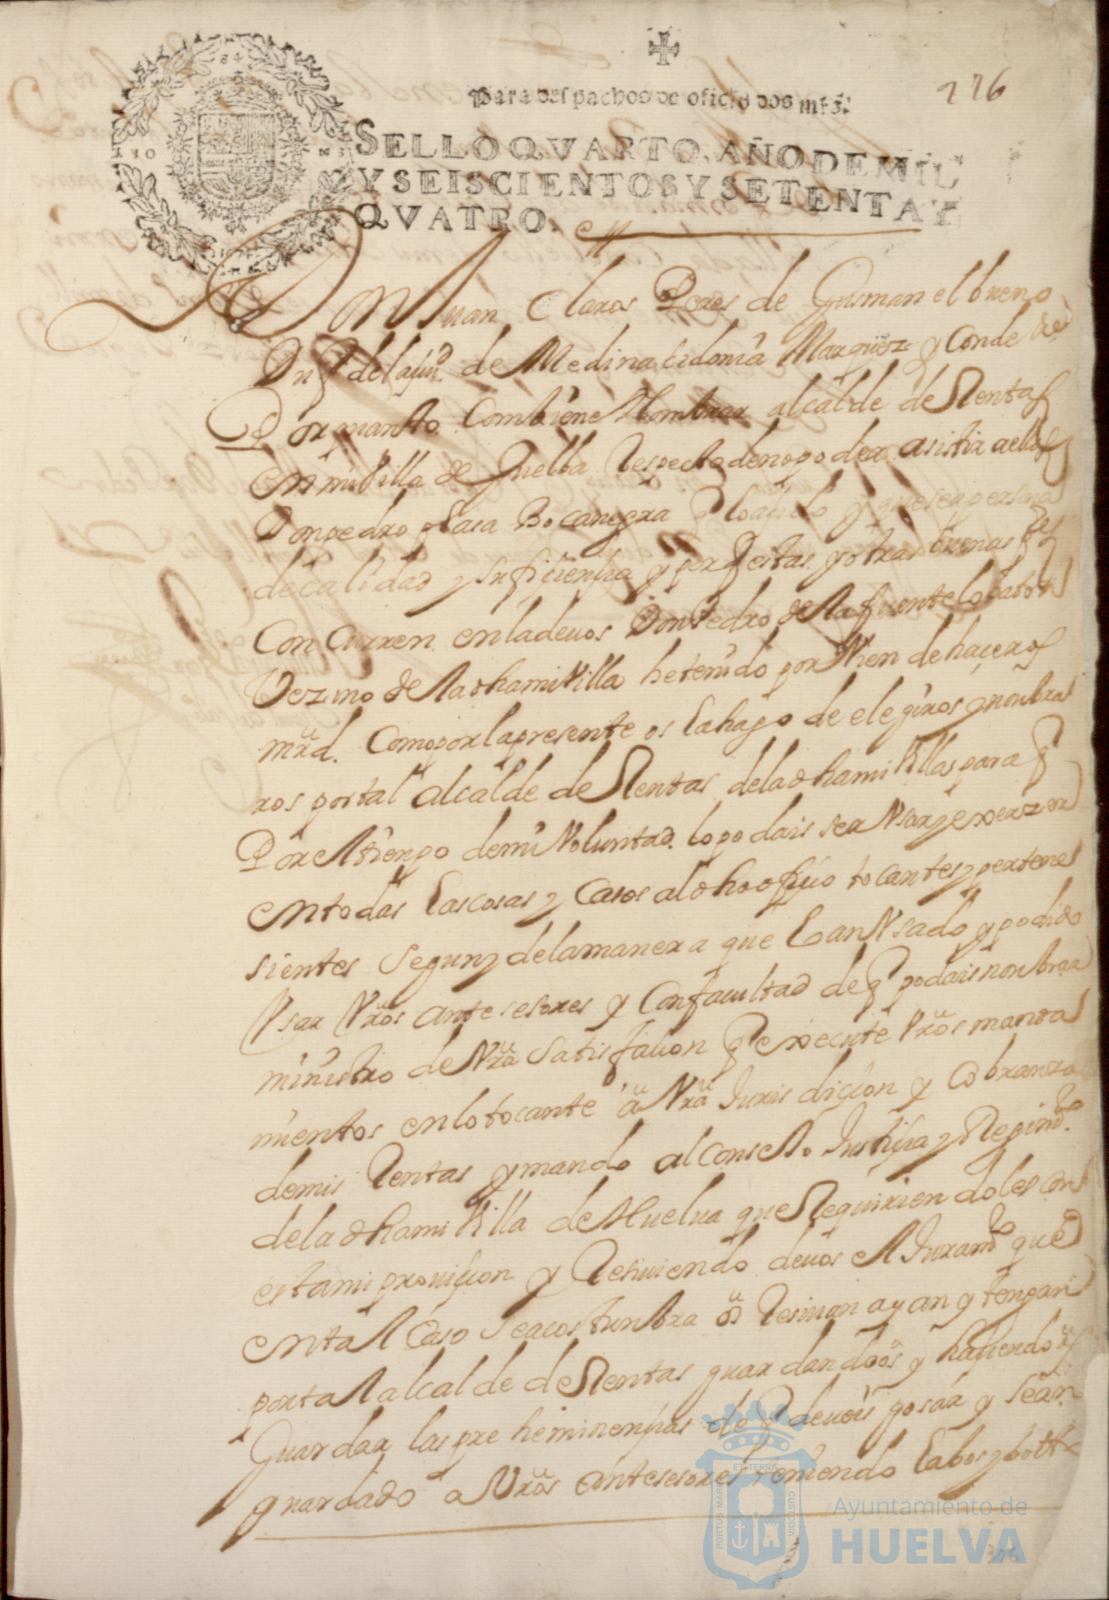 276
Para despachos de oficio dos mrs.
SELLO QVARTO, AÑO DE MIL
Y SEISCIENTOS Y SETENTA Y
QVATRO.
Dn Juan Claros Peres de Gusman el bueno
Duq de la ciud. de Medinasidonia Marques y Conde &c
Por quanto Combiene Nombrar alcalde de Rentas
en mi villa de Huelba Respecto de no poder asistir a ellas
Don pedro Lasa Bocanegra y que sea persona
de calidad y suficiencia y porq estas y otras buenas
Concurren en la de vos Don Pedro de la fuente
Vezino de la dha mi Villa he tenido por vien de haçeros
mrd. Como por la presente os la hago de elegiros y nonbra
ros por tal alcalde de Rentas de la dha mi Villa para q
Por el tienpo de mi Voluntad lo podais ser Vsar y exerzer
en todas las cosas y Casos al dho ofiçio tocantes y pertene
sientes segun y de la manera que lo an Vsado y podido
Vsar Vros antesesores y Con facultad de q podais nonbrar
ministro de Vra satisfaçion q execute Vros manda
mientos en lo tocante a Vra Jurisdiçion y Cobranza
de mis Rentas y mando al consexo Justiçia y Regimto
de la dha mi Villa de Huelua que Requiriendoles con
esta mi prouiçion y Resiuiendo de uos el Juramto que
en tal Caso se acostunbra os Resiuan ayan y tengan
por tal alcalde de Rentas guardandoos y haçiendo
Guardar las preheminençias de q deueis gosar y sean
guardado a Vros antesesores
ET TERRÆ
PORTUS MARIS
CUSTODIA
Ayuntamiento de
HUELVA